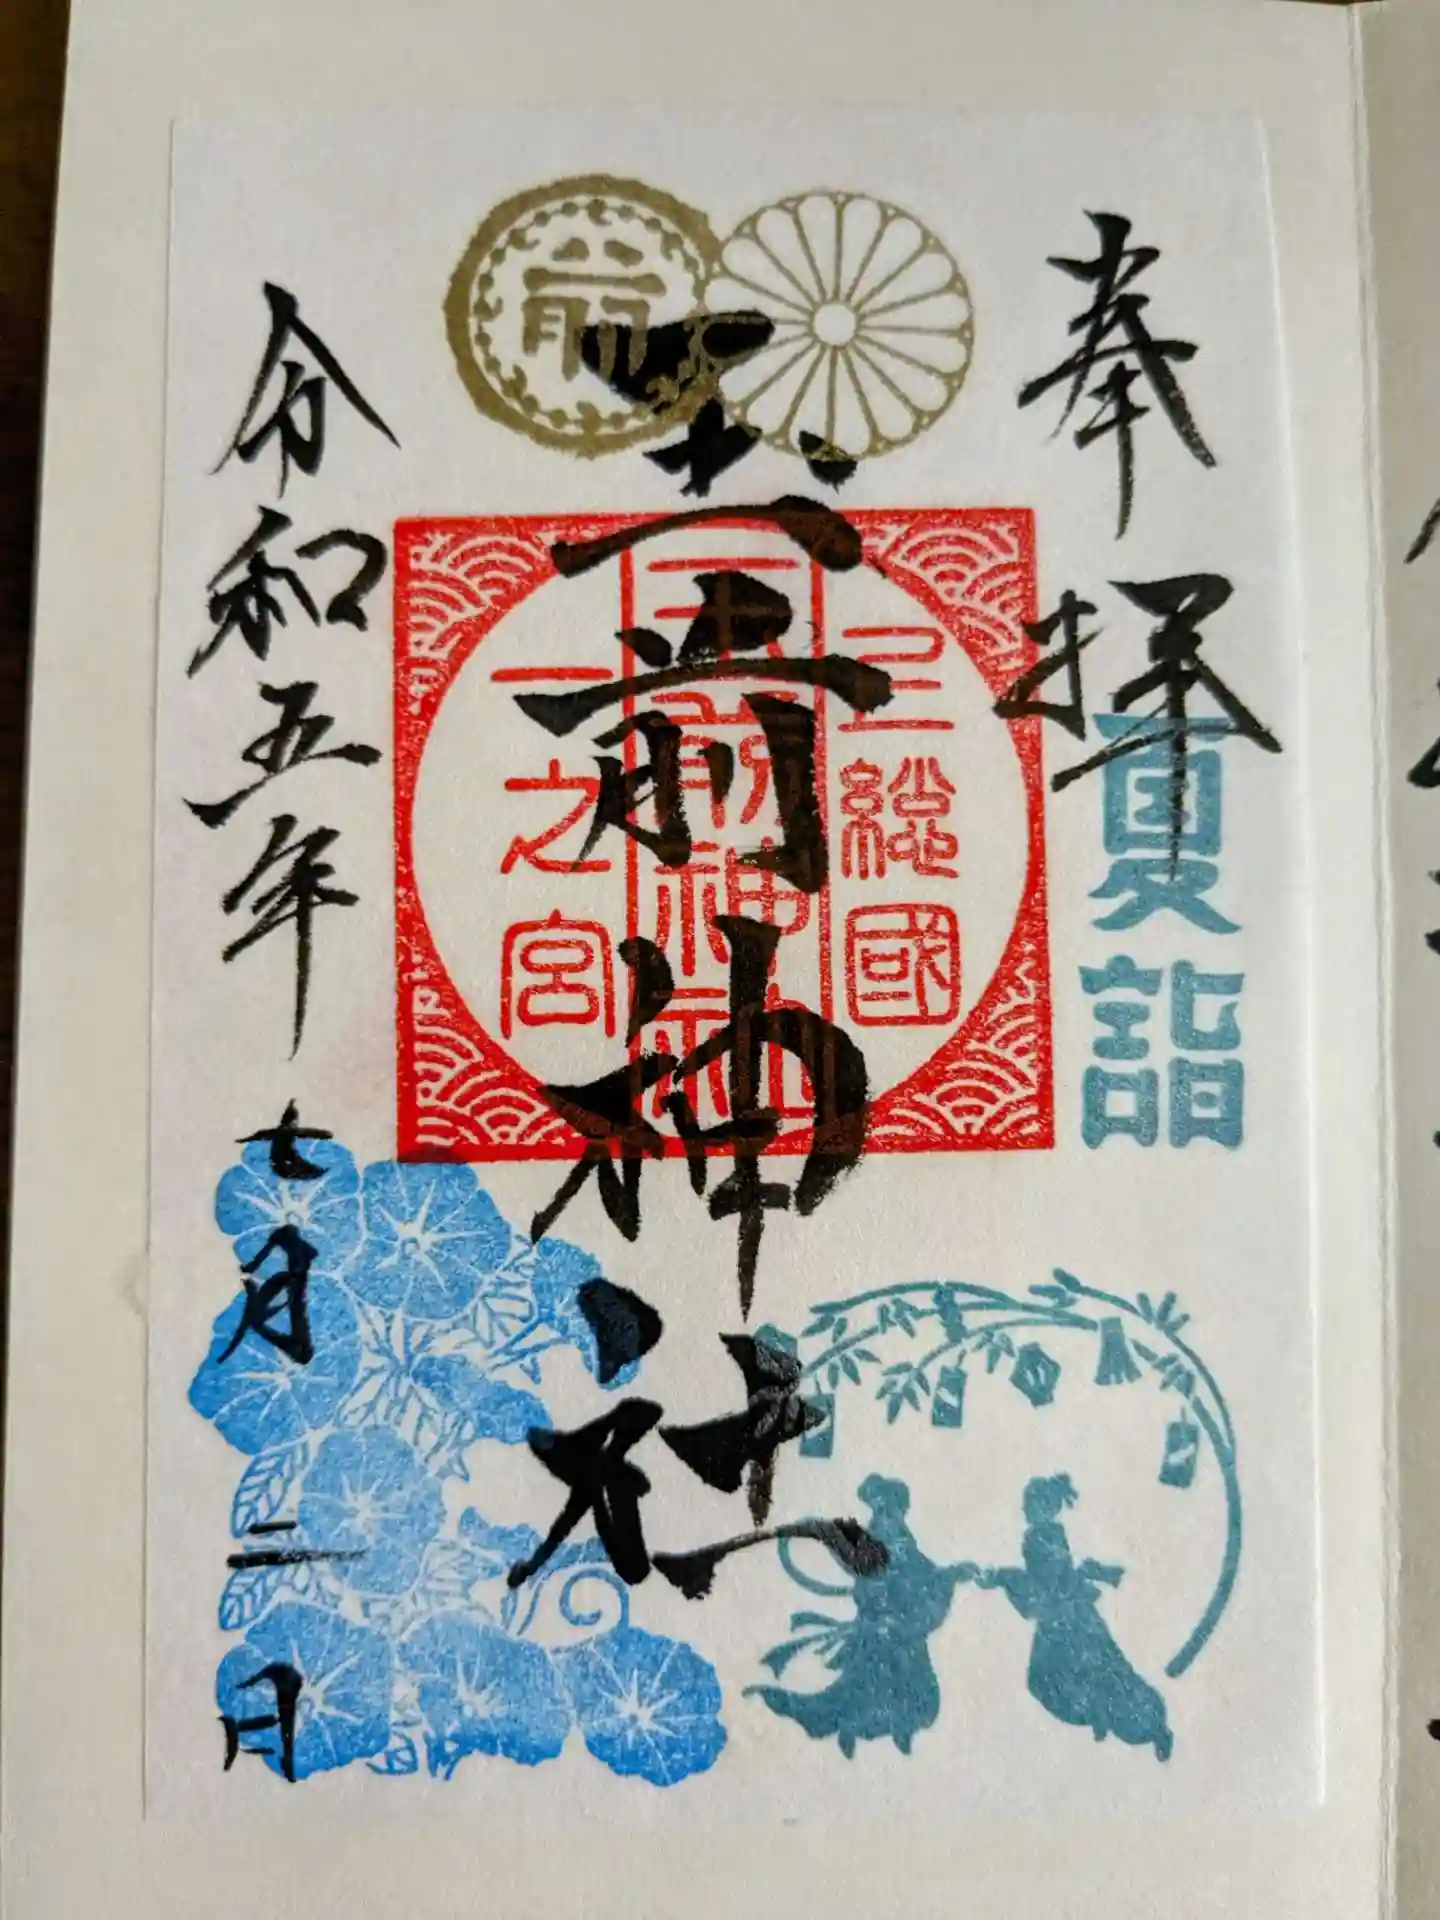 奉拝
夏詣
前
玉前神社
上総國
玉前神社
一之宮
令和五年七月二日